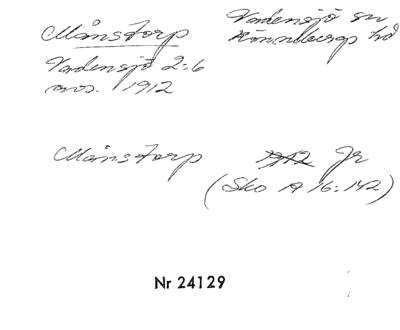 Månstorp Vadensjö sn
Rönnebergs hd
Vadensjö 2:6
avs. 1912
Månstorp 1912 Jr
(Sko A 16:142)
Nr 24129